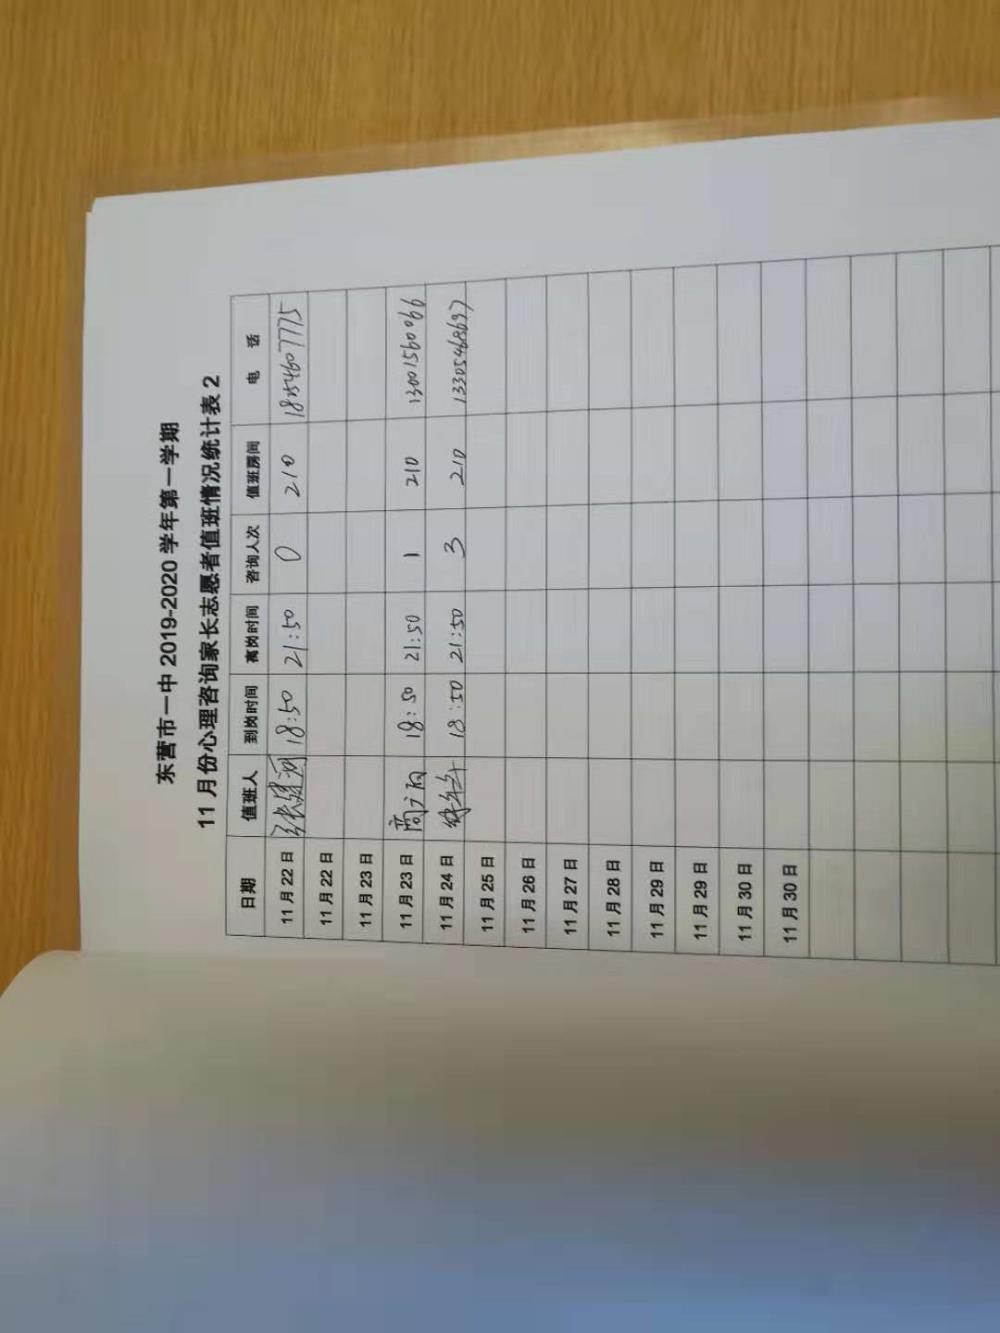 东营市一中 2019-2020 学年第一学期
11 月份心理咨询家长志愿者值班情况统计表 2
日期 值班人 到岗时间 离岗时间 咨询人次 值班房间 电 话
11 月 22 日 张建河 18:50 21:50 0 210 18254607775
11 月 22 日
11 月 23 日
11 月 23 日 18:50 21:50 1 210 13001560066
11 月 24 日 18:50 21:50 3 210 13305468697
11 月 25 日
11 月 26 日
11 月 27 日
11 月 28 日
11 月 29 日
11 月 29 日
11 月 30 日
11 月 30 日